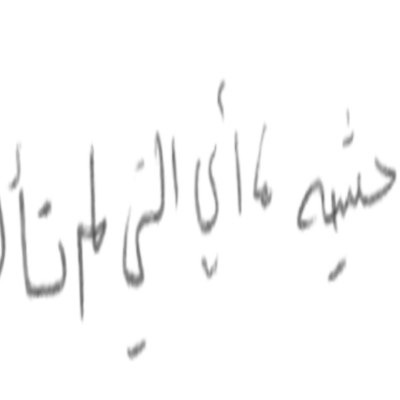 حشيه ما أي التي لم